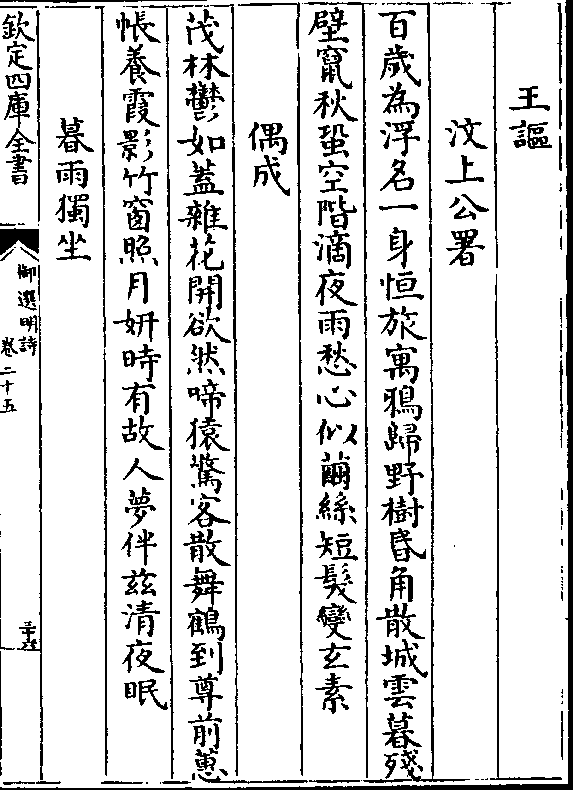 王謳
汶上公署
百歲為浮名一身恒旅寓鴉歸野樹昏角散城雲暮殘
壁竄秋蛩空階滴夜雨愁心似繭絲短髮變玄素
偶成
茂林鬱如蓋雜花開欲然啼猿驚客散舞鶴到尊前蕙
帳養霞影竹窗照月妍時有故人夢伴兹清夜眠
暮雨獨坐
欽定四庫全書
御選明詩
卷二十五
三十六